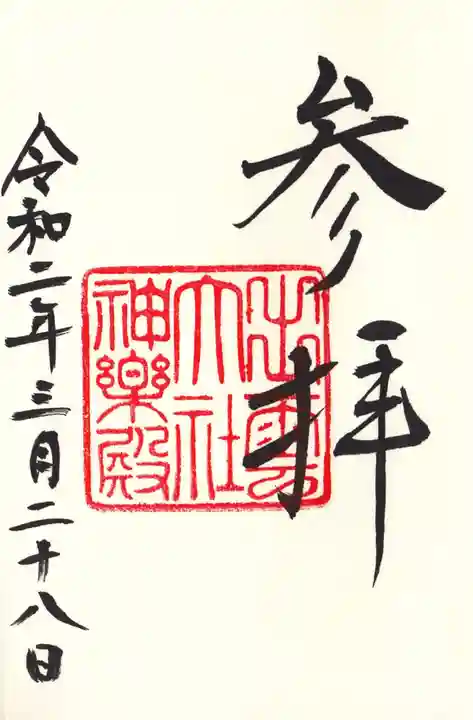 参拝
出雲
大社
神楽殿
令和二年三月二十八日